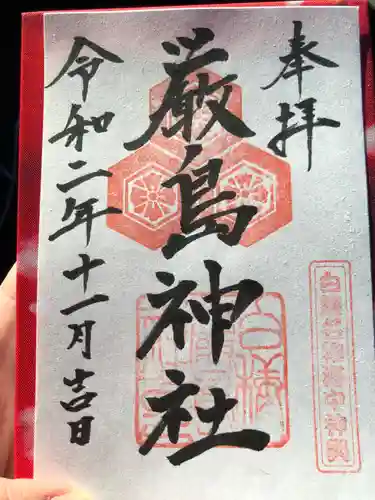 奉拝
厳島神社
令和二年十一月吉日